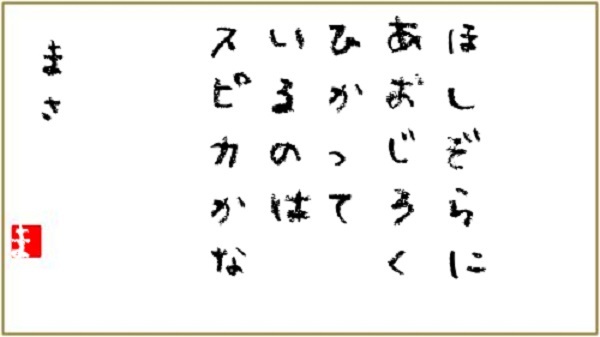 ほしぞらに
あおじろく
ひかって
いるのは
スピカかな
まさ
ま